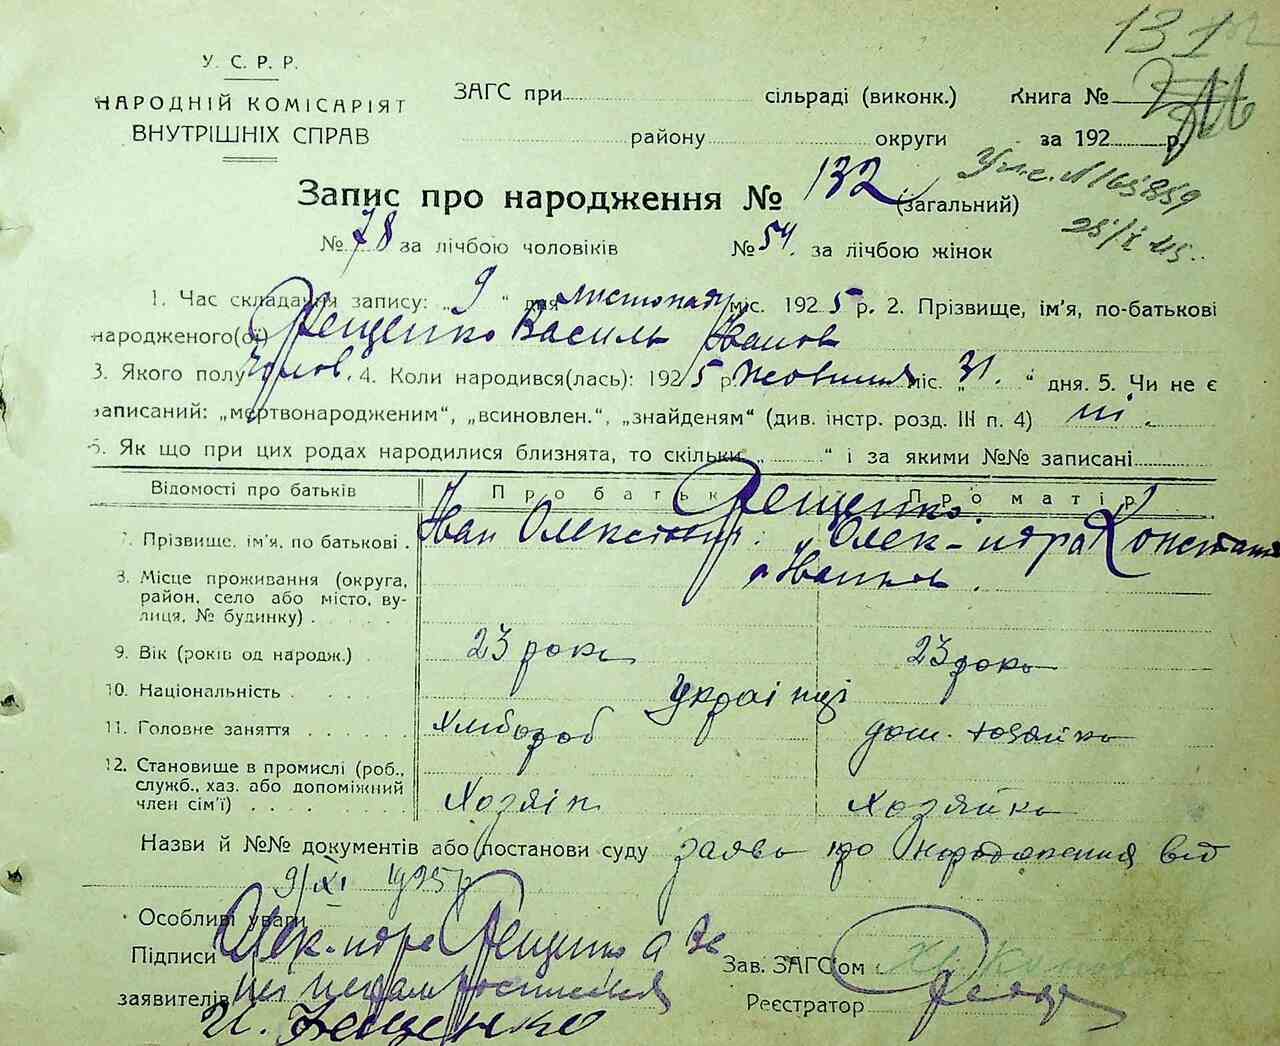 131
У. С. Р. Р.
НАРОДНІЙ КОМІСАРІЯТ
ВНУТРІШНІХ СПРАВ
ЗАГС при сільраді (виконк.) Книга №
району округи за 192 р.
Запис про народження № 132 (загальний)
№ 78 за лічбою чоловіків № 54 за лічбою жінок
1. Час складання запису: „ 9 “ дня листопада міс. 192 5 р. 2. Прізвище, ім'я, по-батькові
народженого(ої) Рещенко Василь Іванов
3. Якого полу чолов. 4. Коли народився(лась): 192 5 р. Жовтня міс. „ 31. “ дня. 5. Чи не є
записаний: „мертвонародженим“, „всиновлен.“, „знайденям“ (див. інстр. розд. III п. 4) ні.
6. Як що при цих родах народилися близнята, то скільки „ “ і за якими №№ записані
Відомості про батьків Про батька Про матір
Рещенко
7. Прізвище, ім'я, по батькові . Іван Олександр. Олек-ндра Констант
Іванов.
8. Місце проживання (округа,
район, село або місто, ву-
лиця, № будинку)
9. Вік (років од народж.) 23 роки 23 роки
10. Національність Українці
11. Головне заняття Хлібороб дом. хозяйка
12. Становище в промислі (роб.,
служб., хаз. або допоміжний
член сім'ї) Хозяін Хозяйка
Назви й №№ документів або постанови суду заява про народження від
9/XI 1925 р
Особливі уваги
Підписи Олек-ндра Рещенко а за
заявителів неі неграм росписався
И. Рещенко
Зав. ЗАГС'ом
Реєстратор